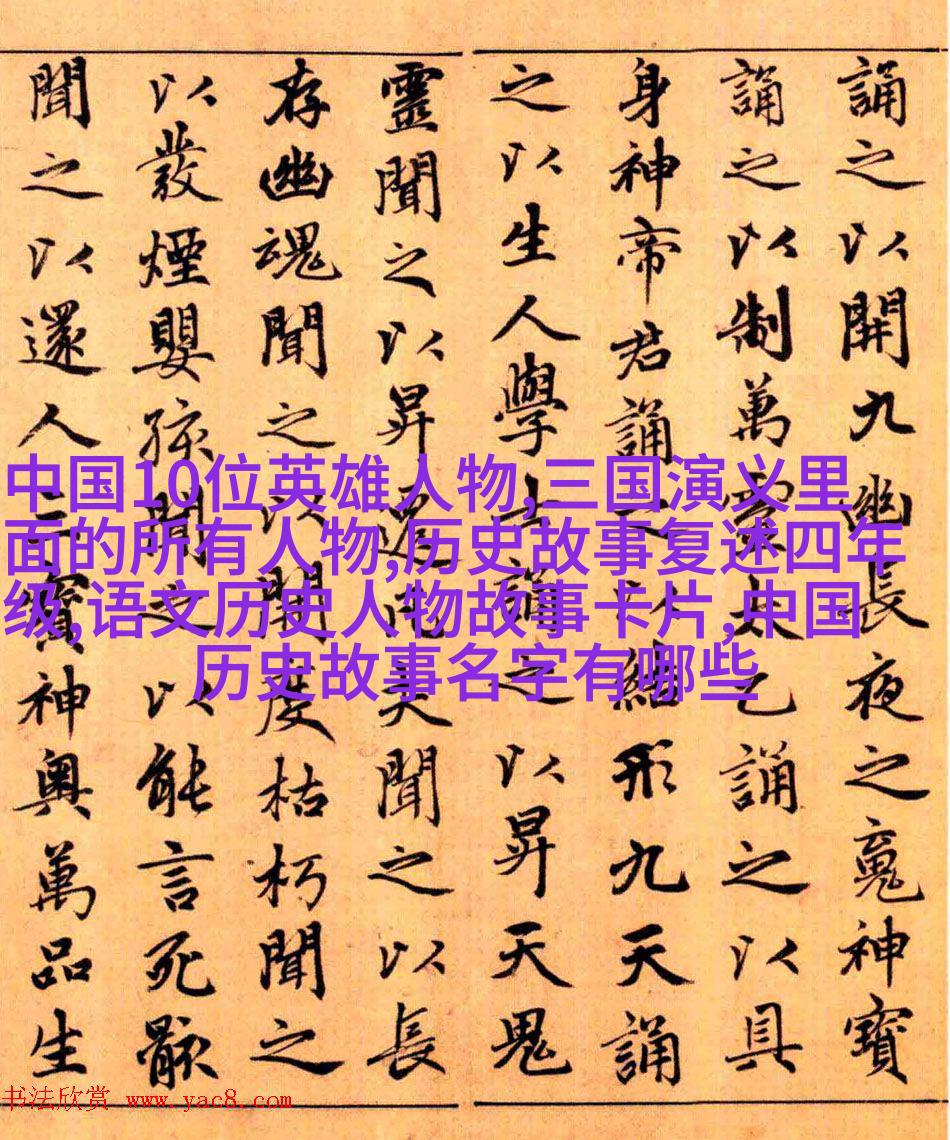 誦之以開九幽長夜之䰟神寶
誦之以制萬靈太乙誦之以具
身神帝君誦之以總形九天誦
之以生人學士誦之以昇天鬼
靈聞之以昇遷凡夫聞之以長
存幽魂聞之以開度枯朽聞之
以發煙嬰孩聞之以能言死骸
聞之以還人三寶神奧萬品生
中国10位英雄人物,三国演义里
面的所有人物,历史故事复述四年
级,语文历史人物故事卡片,中国
历史故事名字有哪些
书法欣赏 www.yac8.com